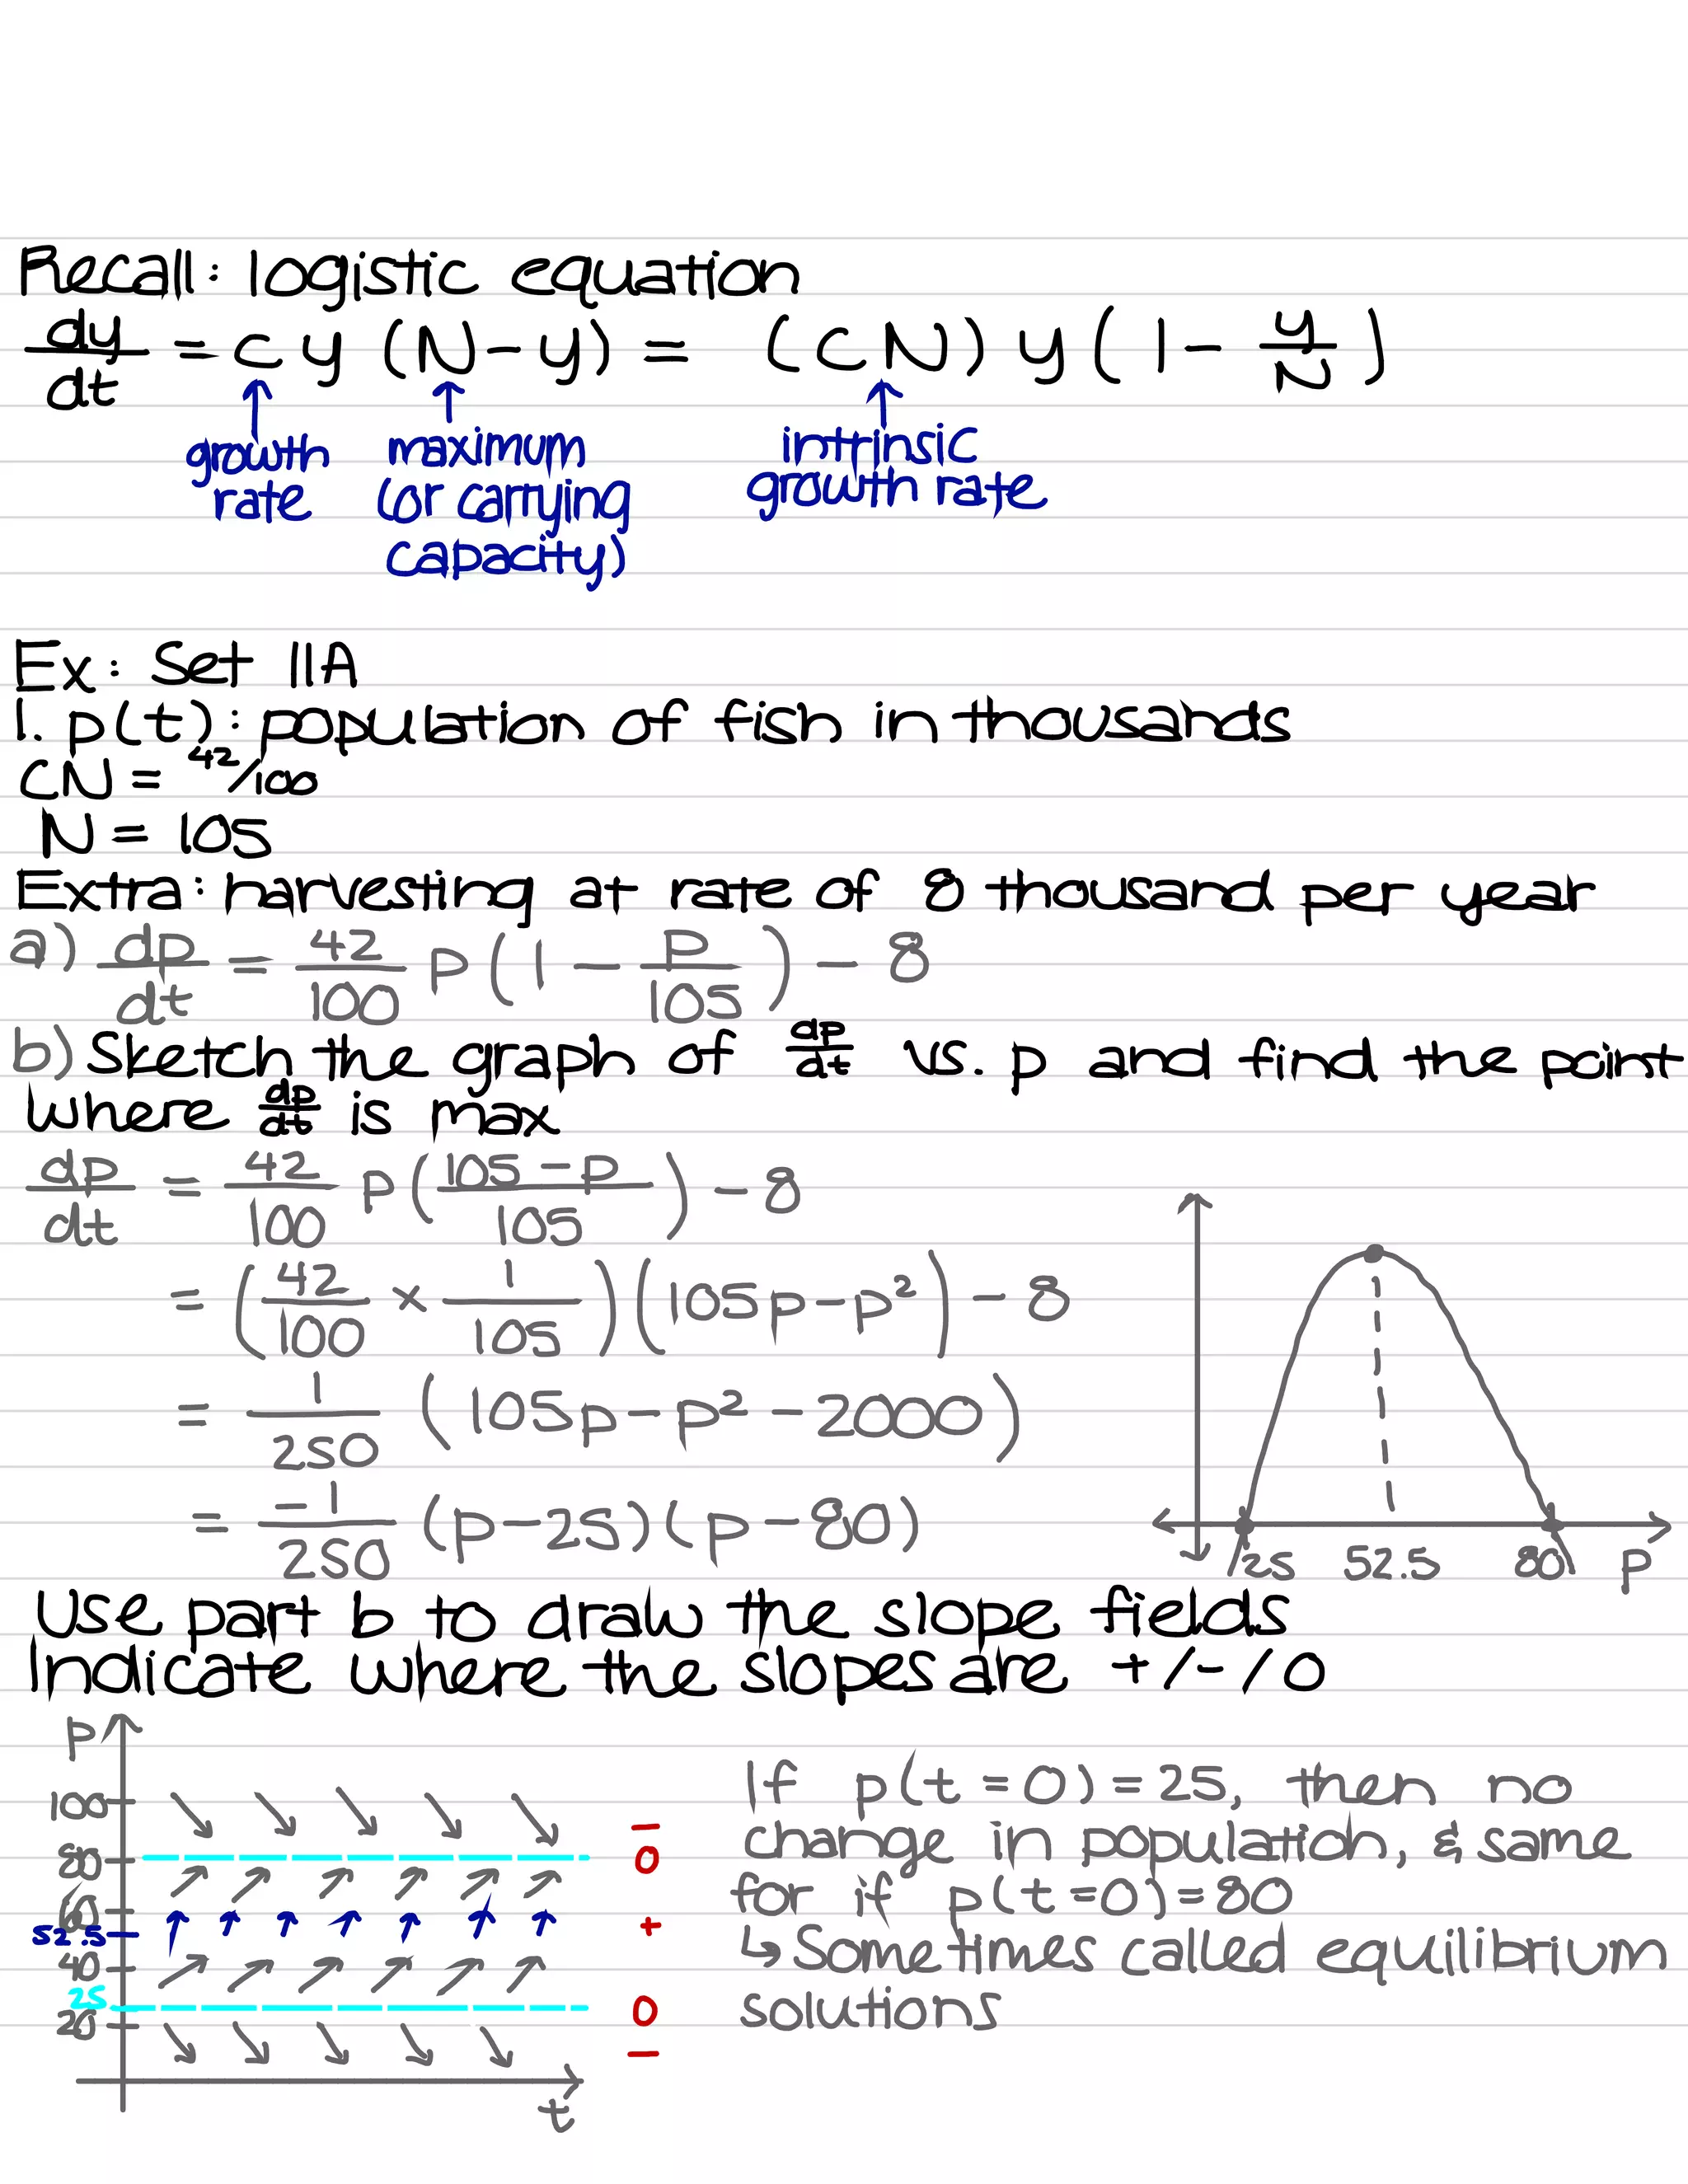 Recall: logistic equation
dy/dt = cy (N-y) = (CN) y (1 - y/N)
↑ ↑ ↑
growth rate
maximum (or carrying capacity)
intrinsic growth rate
Ex: Set 11A
1. p(t): population of fish in thousands
CN = 42/100
N = 105
Extra: harvesting at rate of 8 thousand per year
a) dp/dt = 42/100 p (1 - p/105) - 8
b) Sketch the graph of dp/dt vs. p and find the point
where dp/dt is max
dp/dt = 42/100 p (105-p/105) - 8
= (42/100 × 1/105) (105p-p²) - 8
= 1/250 (105p-p²-2000)
= -1/250 (p-25)(p-80)
25 52.5 80 p
Use part b to draw the slope fields
Indicate where the slopes are +/-/0
p
100
80
60
52.5
40
25
20
t
-
0
+
0
-
If p(t=0)=25, then no
change in population, & same
for if p(t=0)=80
↳ Sometimes called equilibrium
solutions